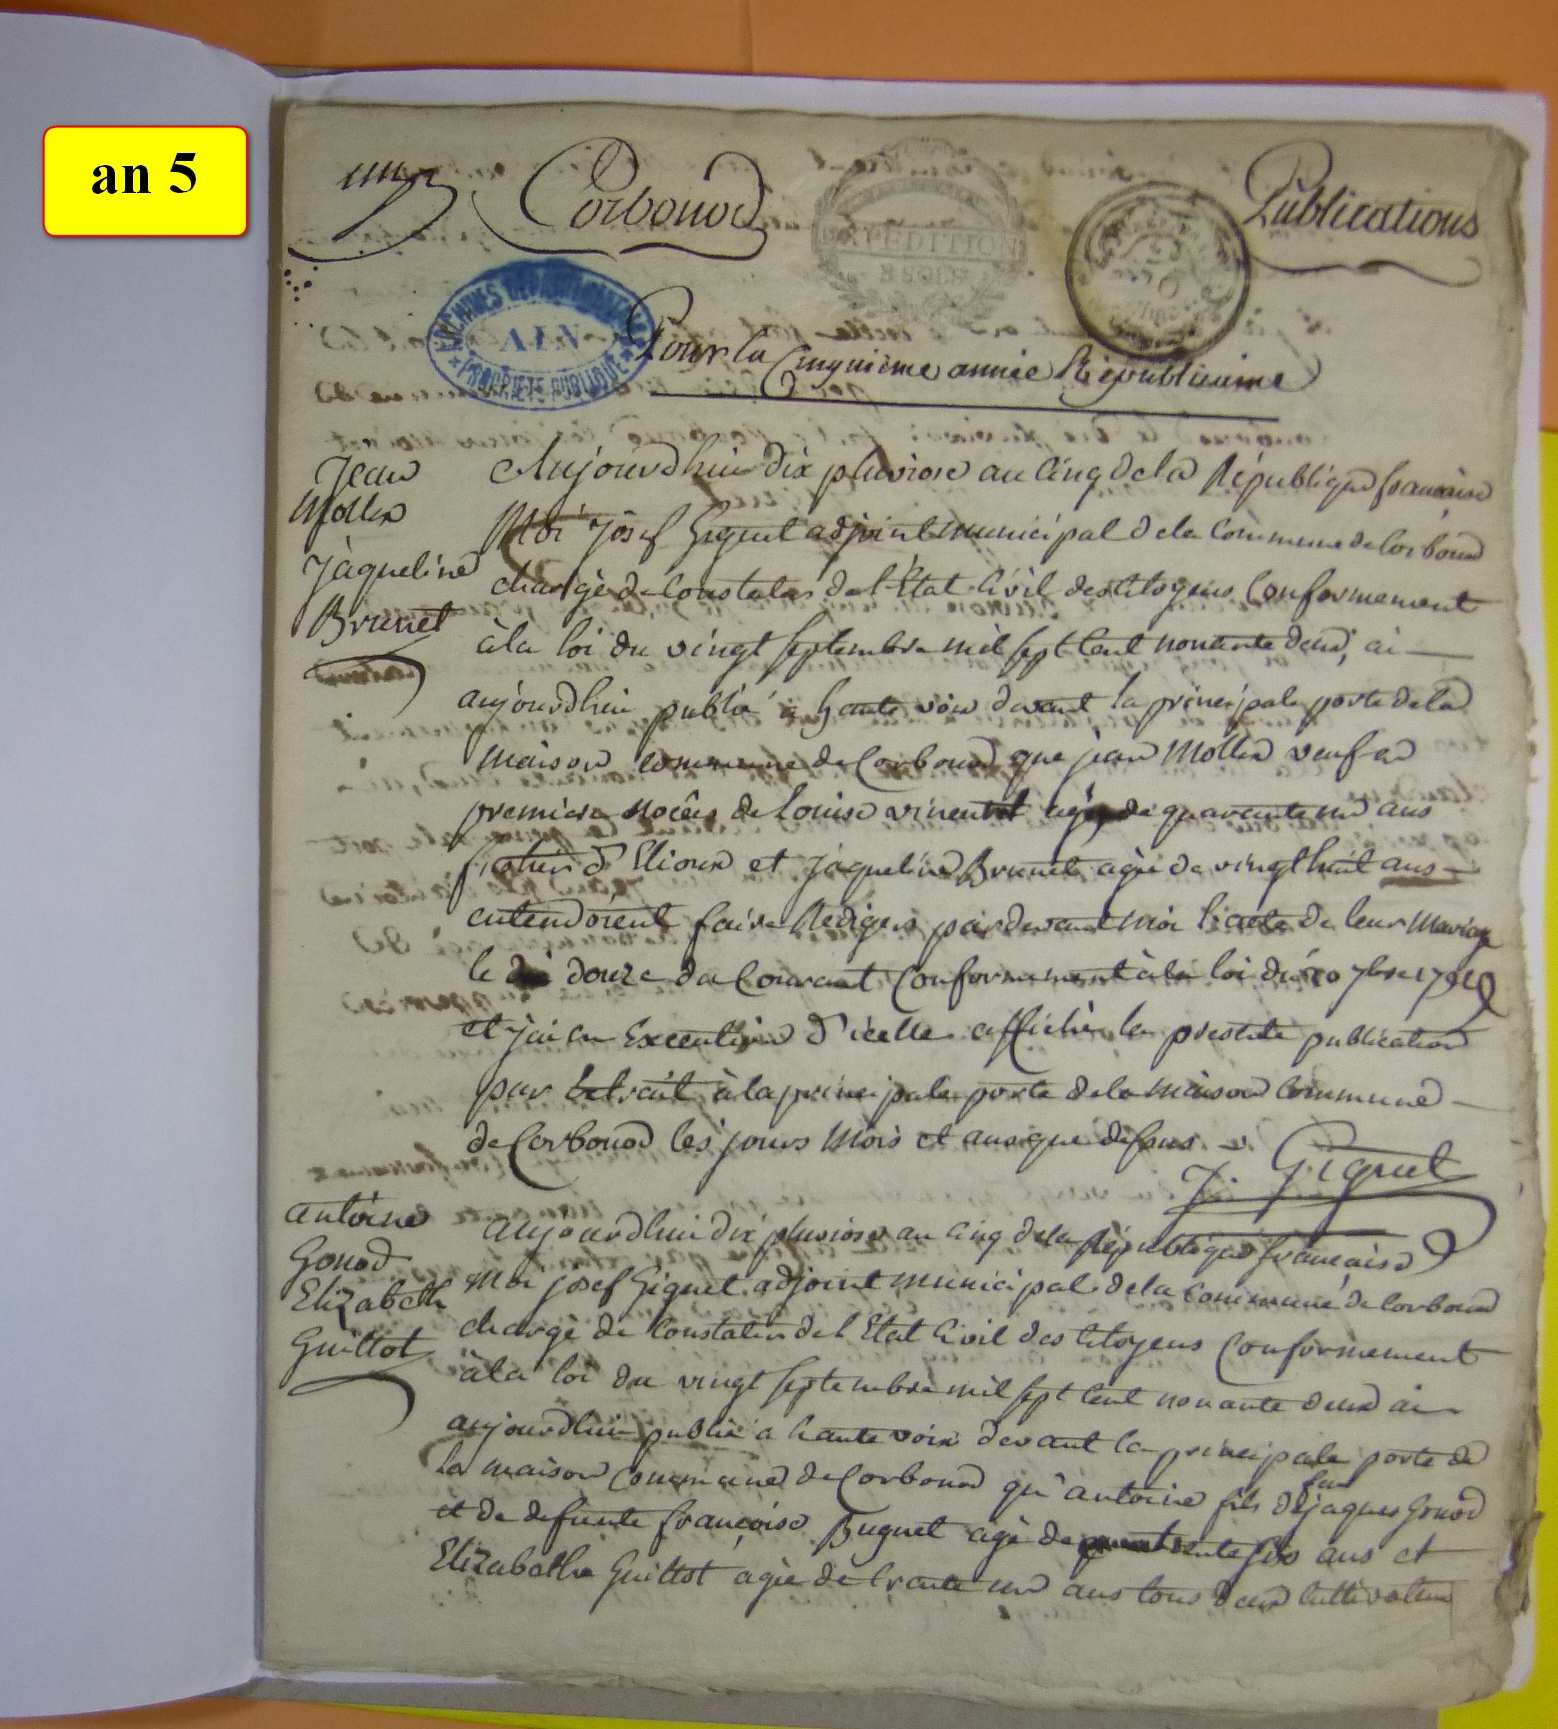 an 5
Corbonod
Publications
EXPEDITION
8 SOLS
ARCHIVES DEPARTEMENTALES
AIN
PROPRIÉTÉ PUBLIQUE
Pour la Cinquième année Républicaine
Jean
Mollex
Jàqueline
Brunet
Aujourdhui dix pluviose an Cinq de la République francaise
Moi Josef Giguet adjoint municipal de la Commune de Corbonod
chargé de Constater de l'État Civil des Citoyens Conformement
à la loi du vingt septembre mil sept Cent nonante deux, ai
aujourdhui publié a haute voix devant la principale porte de la
maison commune de Corbonod que jean Mollex veuf en
premiere nocês de Louise vincent agé de quarante un ans
d'Elioux et Jaqueline Brunet agée de vingt huit ans
entendoient faire Rediger pardevant moi l'acte de leur Mariage
le douze du Courant Conformement à la loi du 20 7bre 1792
et j'ai en Execution d'icelle affiché la presente publication
par Extrait à la principale porte de la maison Commune
de Corbonod les jours Mois et an que dessus
J. Giguet
antoine
Gonod
Elizabeth
Guittot
aujourdhui dix pluviose an Cinq de la République francaise
Moi josef Giguet adjoint municipal de la Commune de Corbonod
chargé de Constater de l Etat Civil des Citoyens Conformement
à la loi du vingt septembre mil sept Cent nonante deux ai
aujourdhui publié a haute voix devant la principale porte de
la maison Commune de Corbonod qu'antoine fils de feu jaques Gonod
et de defunte françoise Buguet agé de trente six ans et
Elizabethe Guittot agée de trente un ans tous deux Cultivateurs